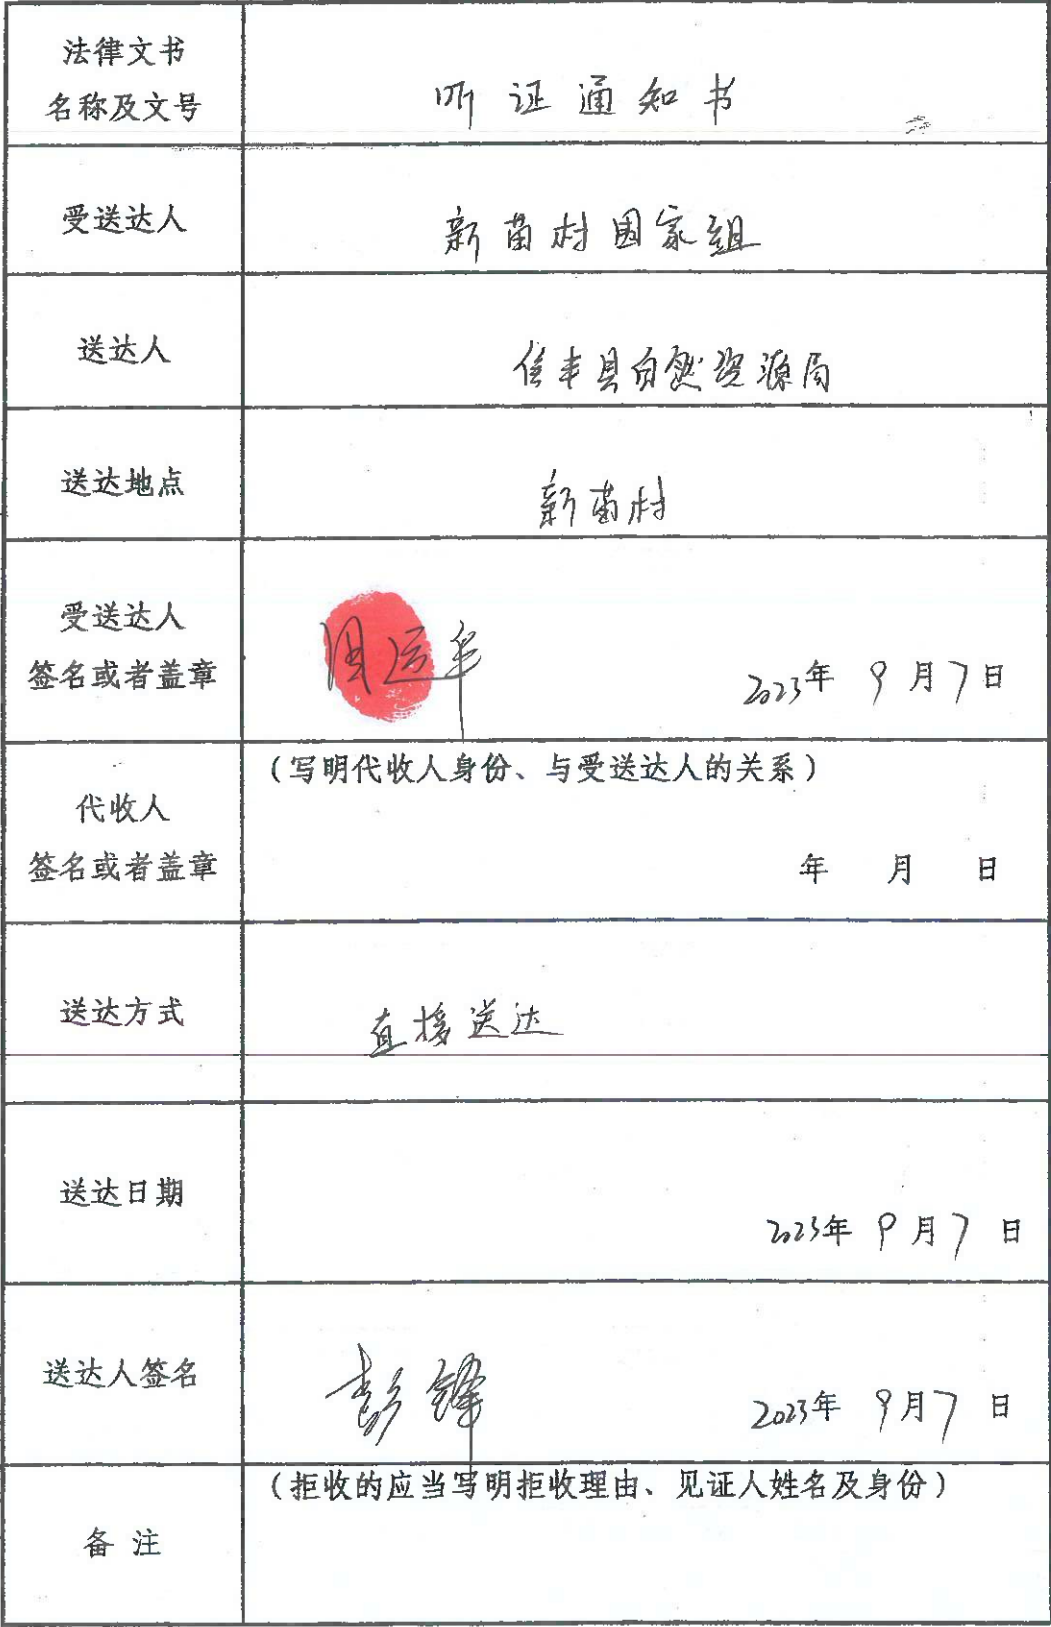 法律文书
名称及文号
听证通知书
受送达人
新苗村国家组
送达人
信丰县自然资源局
送达地点
新苗村
受送达人
签名或者盖章
周运
2023年 9月7日
(写明代收人身份、与受送达人的关系)
代收人
签名或者盖章
年 月 日
送达方式
直接送达
送达日期
2023年 9月7日
送达人签名
彭锋
2023年 9月7日
(拒收的应当写明拒收理由、见证人姓名及身份)
备 注